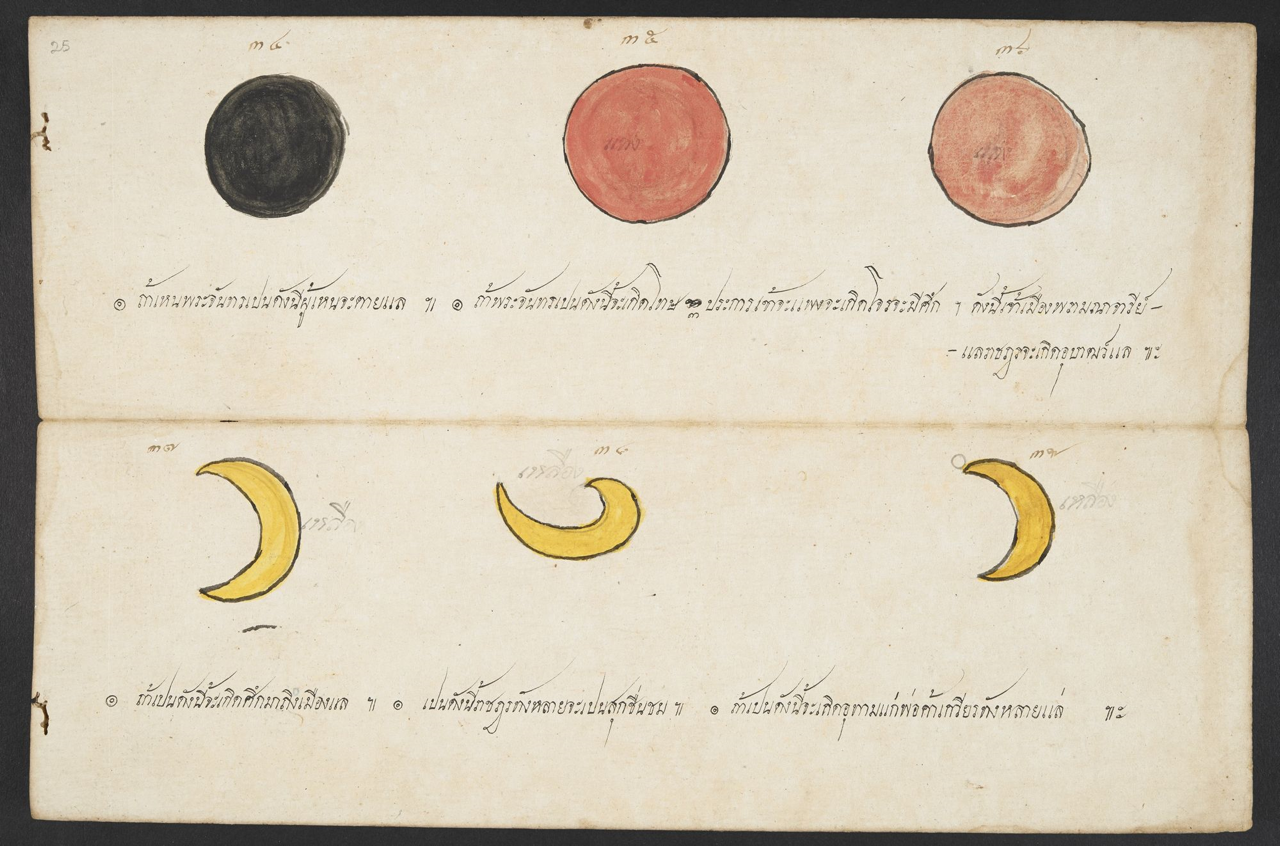 25
๓๔ ๓๕ ๓๖
แดง แดง
๏ ถ้าเหนพระจันทรเปนดังนี้ผู้เหนจะตายแล ฯ ๏ ถ้าพระจันทรเปนดังนี้จะเกิดโทษ ๓ ประการเข้าจะแพงจะเกิดโจรจะมีศึก ฯ ดังนี้เจ้าเมืองพราม
แลราชฎรจะเกิดอุบาฒว์แล ฯะ
๓๗ ๓๘ ๓๙
เหลือง เหลือง เหลือง
๏ ถ้าเปนดังนี้จะเกิดศึกมาถึงเมืองแล ฯ ๏ เปนดังนี้ราชฎรทังหลายจะเปนสุกชื่นชม ฯ ๏ ถ้าเปนดังนี้จะเกิดแก่พ่อค้าทังหลายแล่ ฯะ